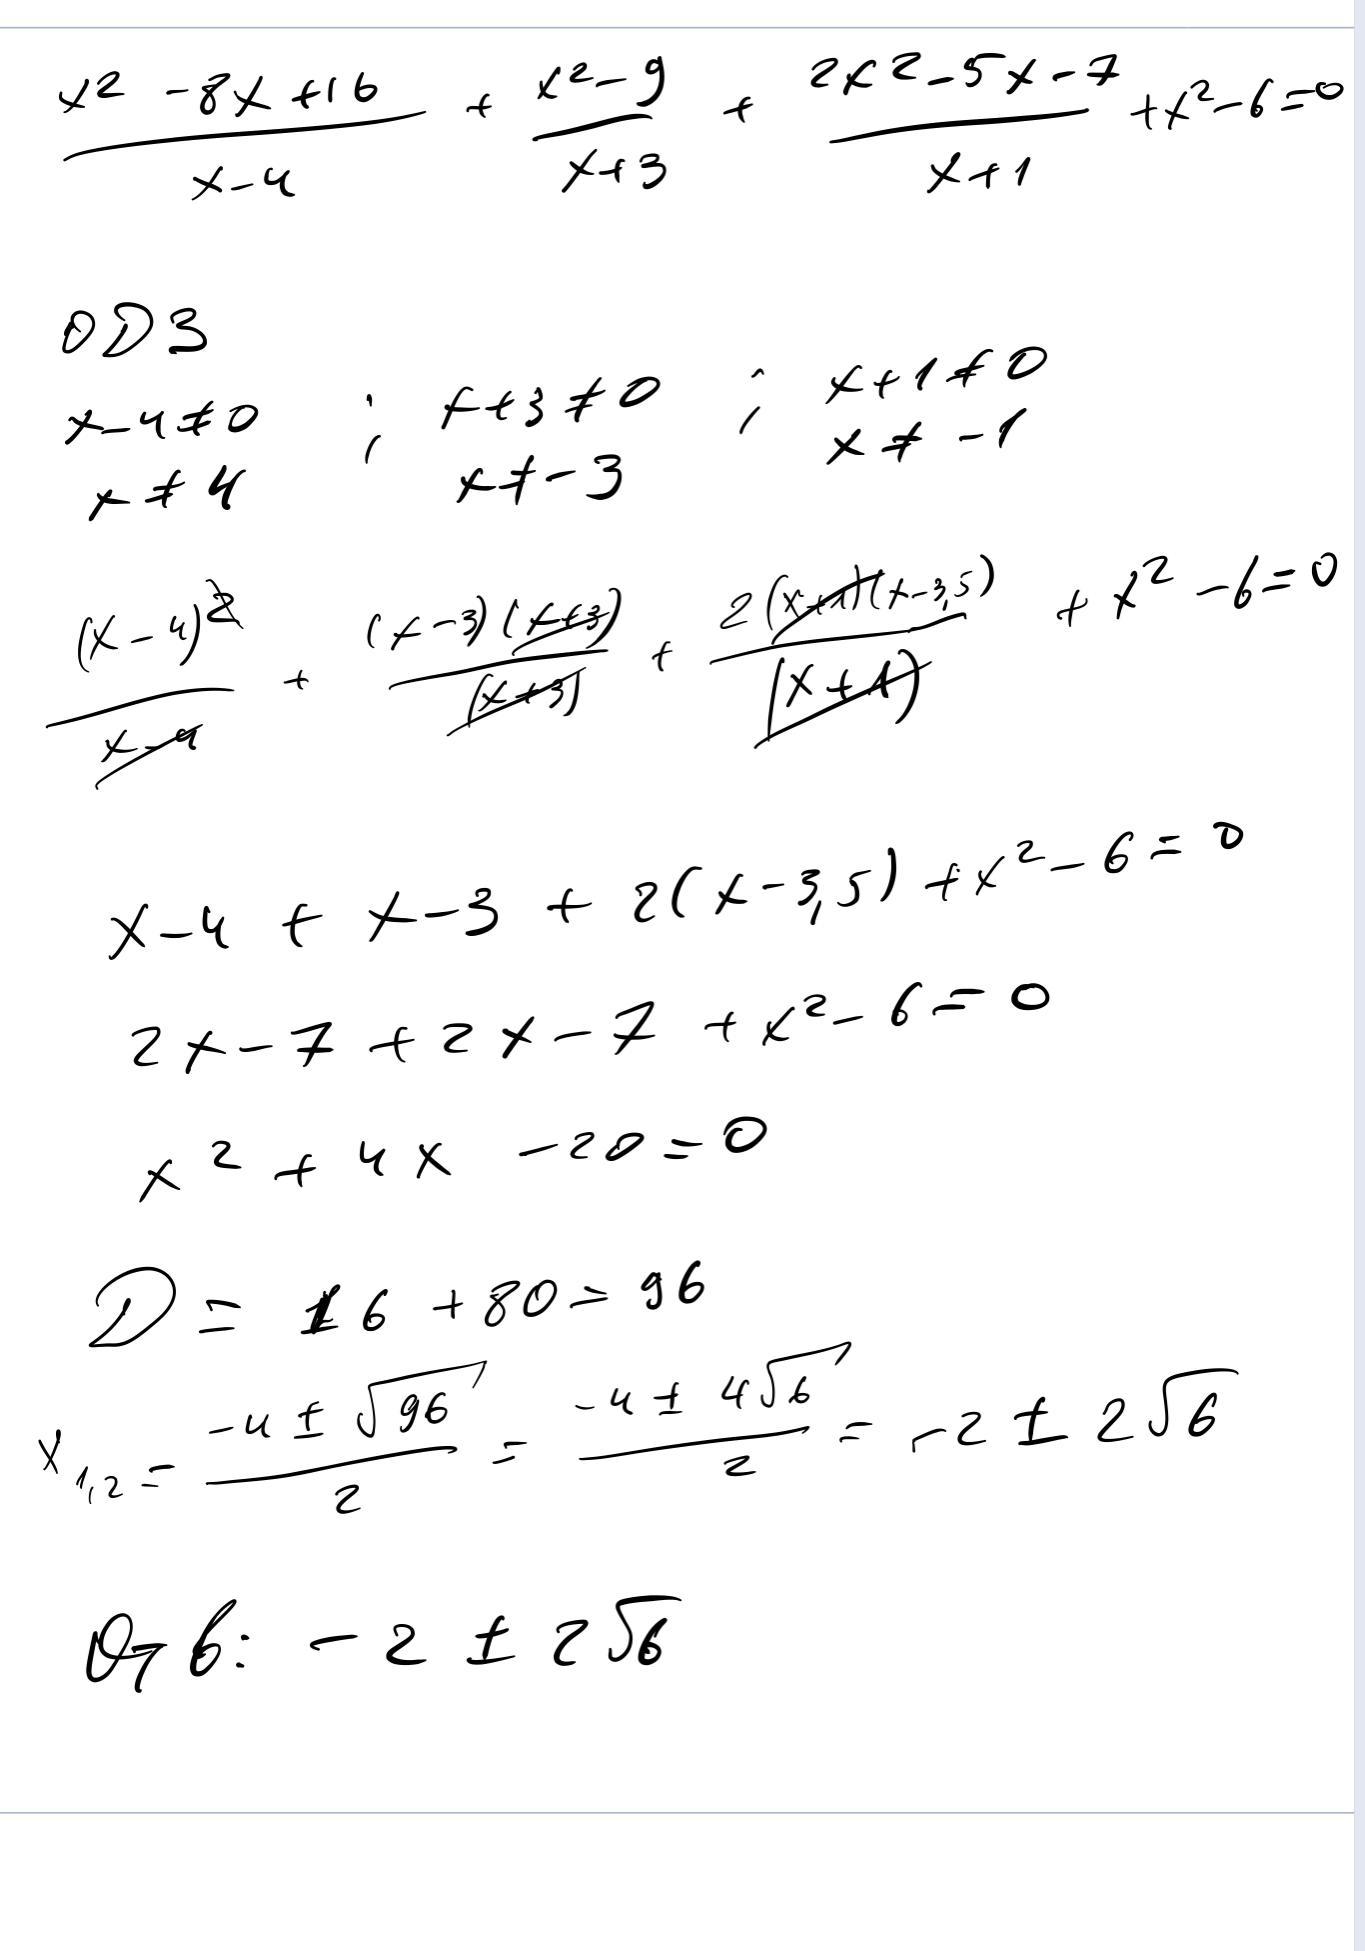 x² - 8x + 16 / x - 4 + x² - 9 / x + 3 + 2x² - 5x - 7 / x + 1 + x² - 6 = 0
ОДЗ
x - 4 ≠ 0 ; x + 3 ≠ 0 ; x + 1 ≠ 0
x ≠ 4 x ≠ -3 x ≠ -1
(x - 4)² / x - 4 + (x - 3)(x + 3) / (x + 3) + 2(x + 1)(x - 3,5) / (x + 1) + x² - 6 = 0
x - 4 + x - 3 + 2(x - 3,5) + x² - 6 = 0
2x - 7 + 2x - 7 + x² - 6 = 0
x² + 4x - 20 = 0
D = 16 + 80 = 96
x₁,₂ = -4 ± √96 / 2 = -4 ± 4√6 / 2 = -2 ± 2√6
Отв: -2 ± 2√6